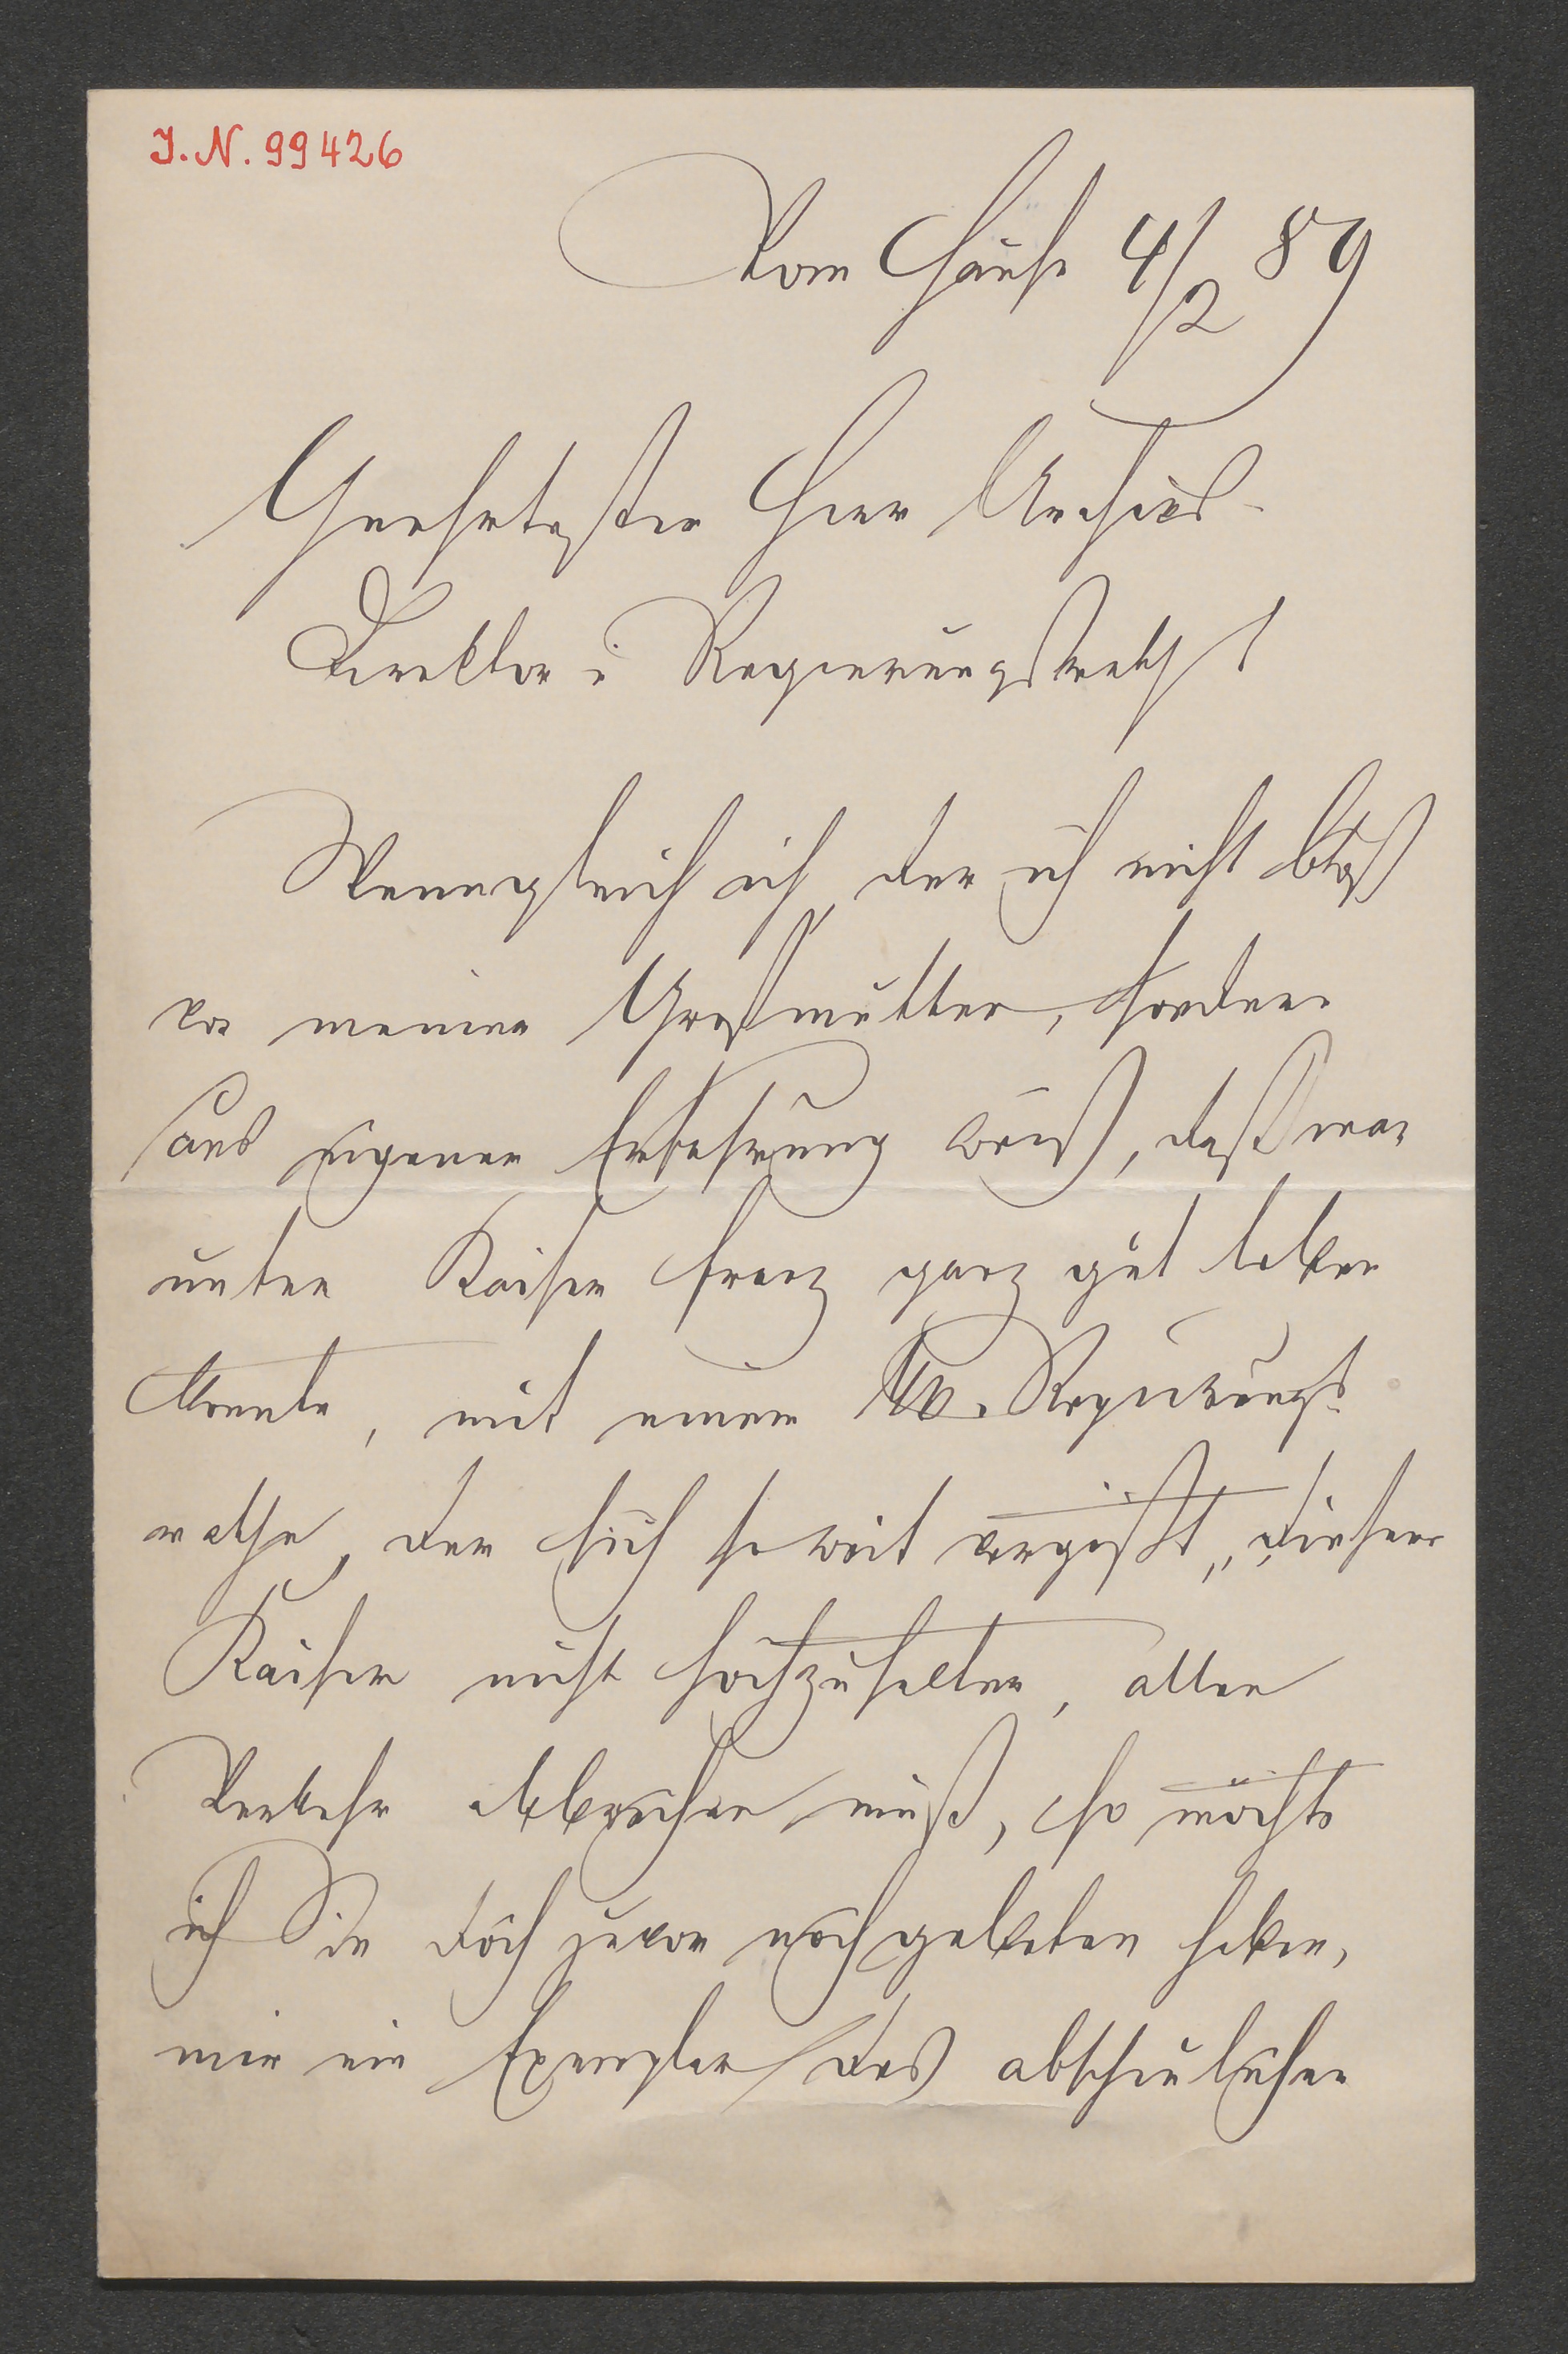 I. N. 99426
Vom Hause 4/2 89
Geehrtester Herr Archivs-
Direktor u Regierungsrath!
Wenngleich ich, der ich nicht bloß
von meiner Großmutter, sondern
aus eigener Erfahrung weiß, daß man
unter Kaiser Franz ganz gut leben
konnte, mit einem Regierungs-
rathe, der sich so weit vergißt, „diesen
Kaiser nicht hochzuhalten, allen
Verkehr abbrechen muß, so möchte
ich Sie doch zuvor noch gebeten haben,
mir ein Exemplar des abscheulichen